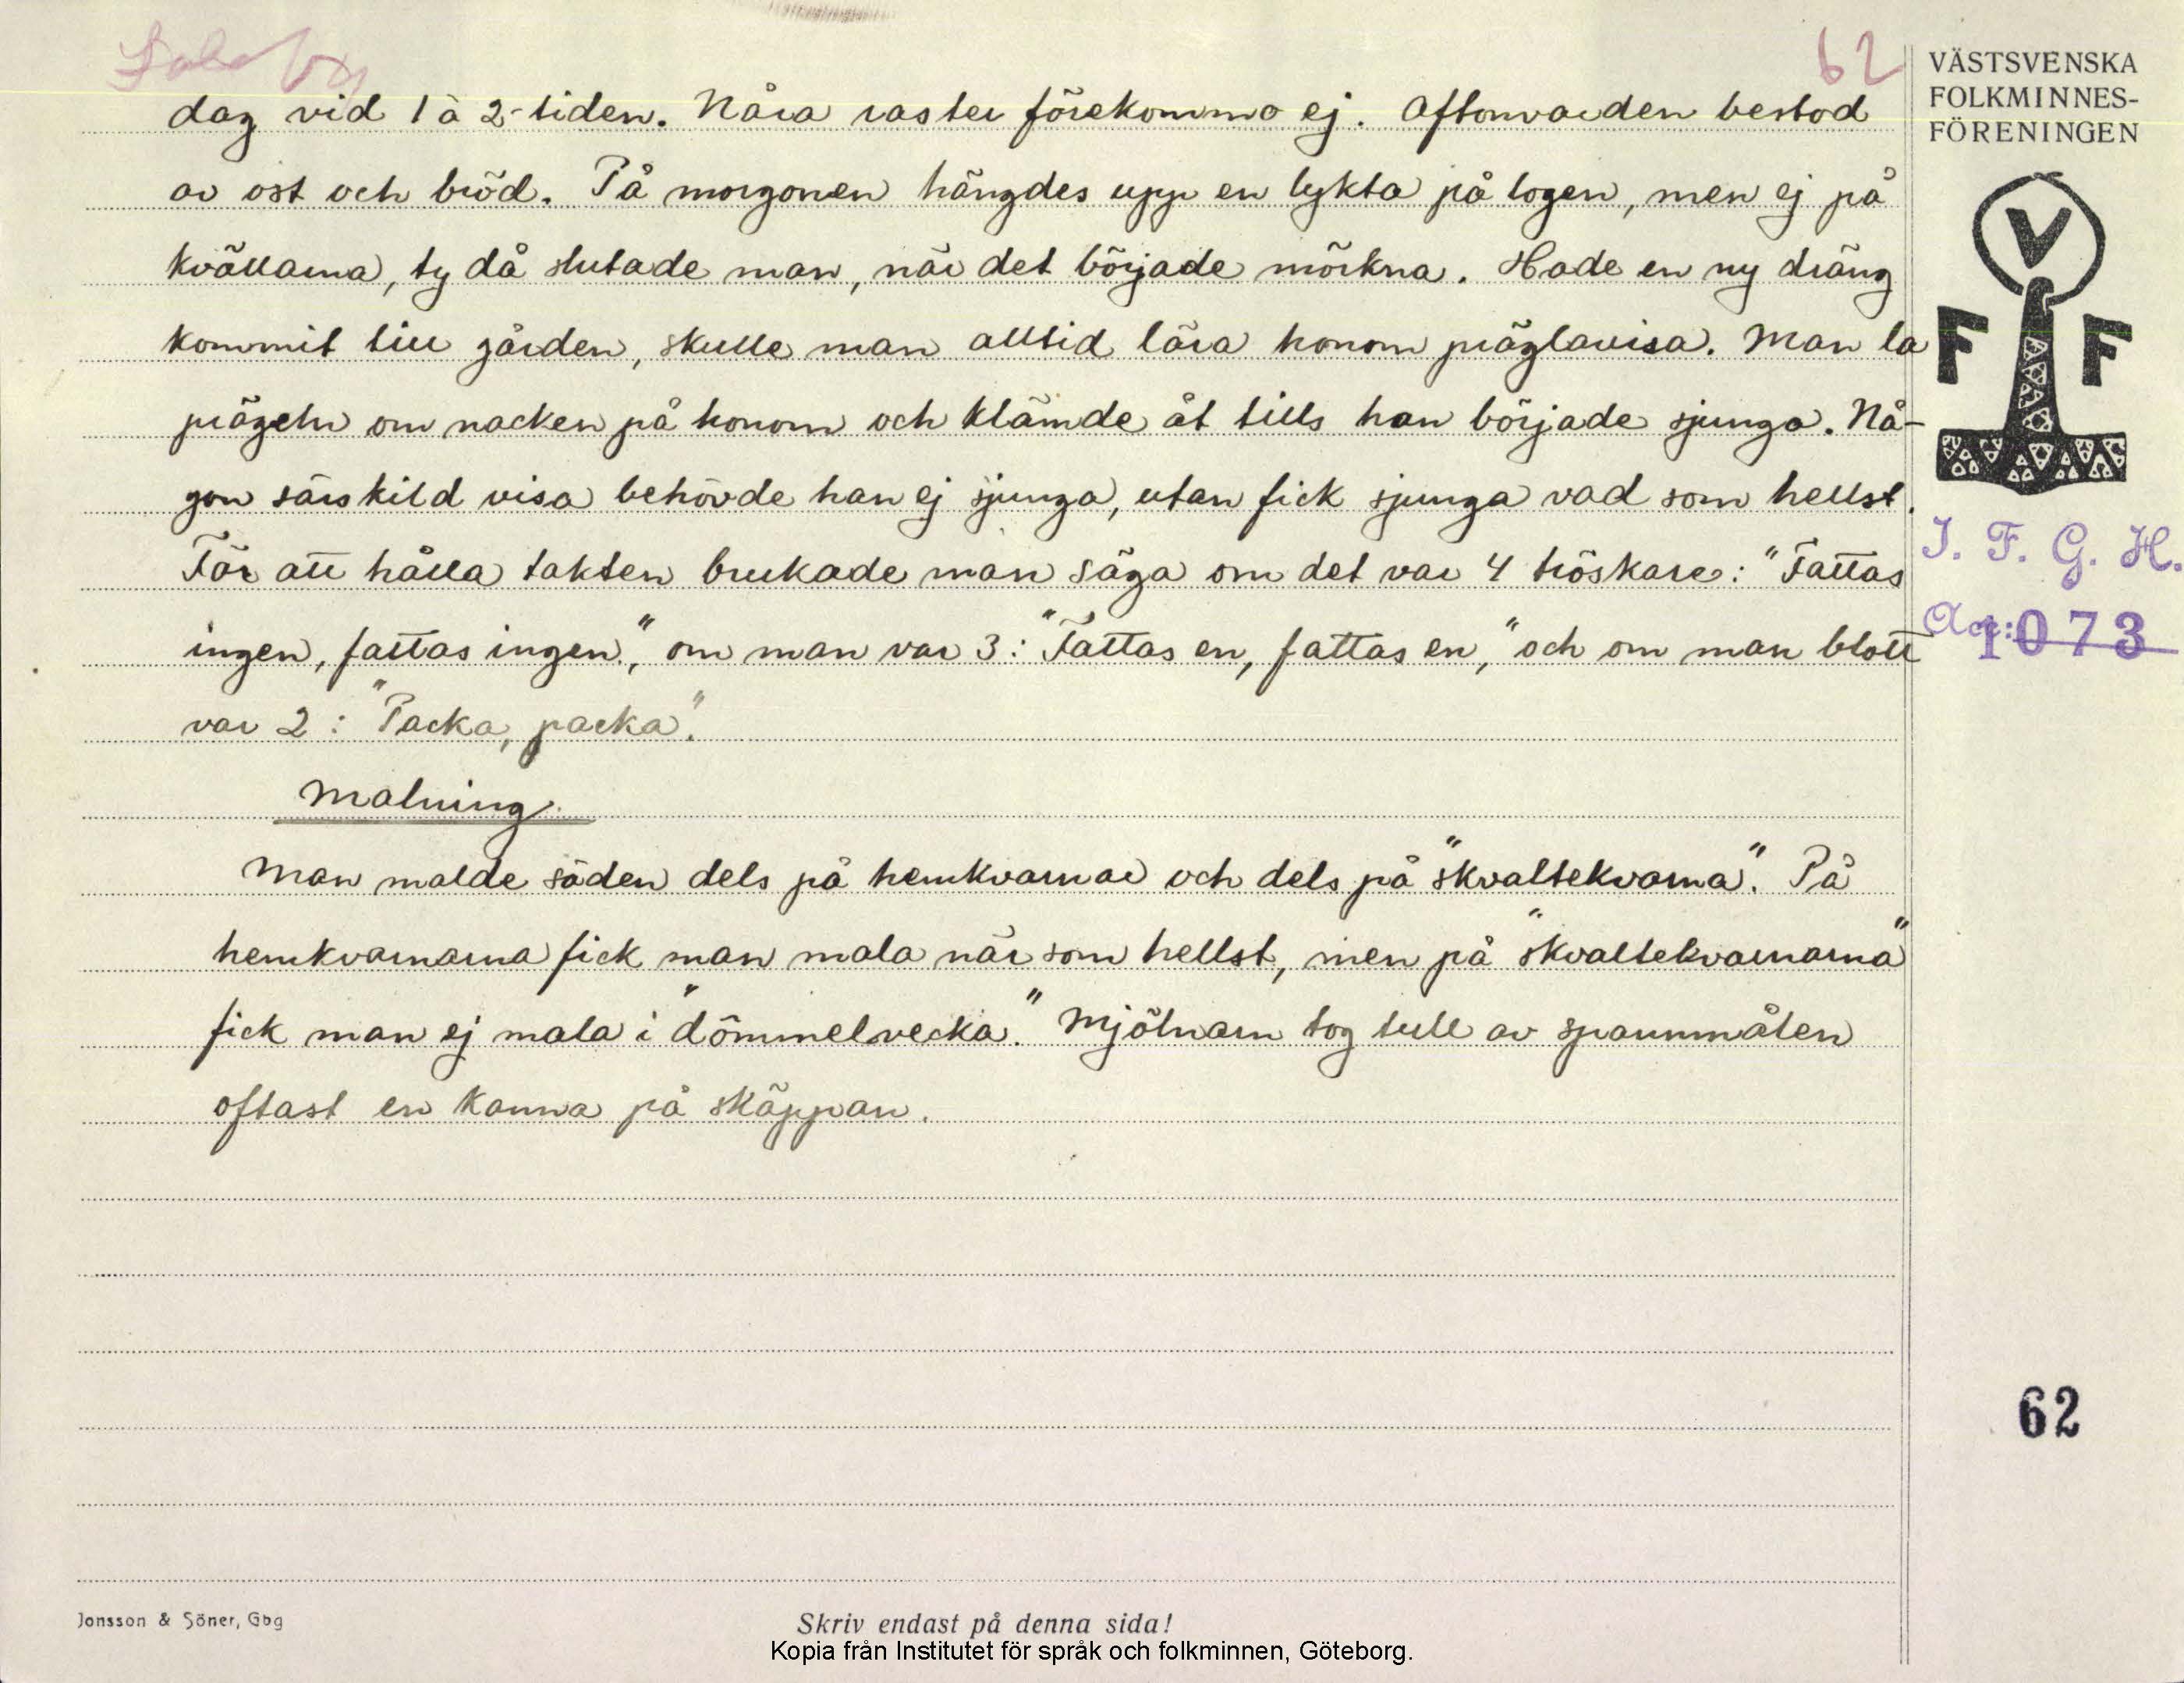 62
dag vid 1 à 2-tiden. Nåra raster förekommo ej. Aftonvarden bestod
av ost och bröd. På morgonen hängdes upp en lykta på logen, men ej på
kvällarna, ty då slutade man, när det började mörkna. Hade en ny dräng
kommit till gården, skulle man alltid lära honom präglavisa. Man la
prägeln om nacken på honom och klämde åt tills han började sjunga. Nå-
gon särskild visa behövde han ej sjunga, utan fick sjunga vad som hellst.
För att hålla takten brukade man säga om det var 4 tröskare: "Fattas
ingen, fattas ingen", om man var 3: "Fattas en, fattas en," och om man blott
var 2: "Packa, packa".
Malning
Man malde säden dels på hemkvarnar och dels på "skvaltekvarna". På
hemkvarnarna fick man mala när som hellst, men på "skvaltekvarnarna"
fick man ej mala i "dömmelvecka." Mjölnarn tog tull av spannmålen
oftast en kanna på skäppan.
VÄSTSVENSKA
FOLKMINNES-
FÖRENINGEN
V
F F
I. F. G. H.
Acc: 1073
62
Jonsson & Söner, Gbg
Skriv endast på denna sida!
Kopia från Institutet för språk och folkminnen, Göteborg.